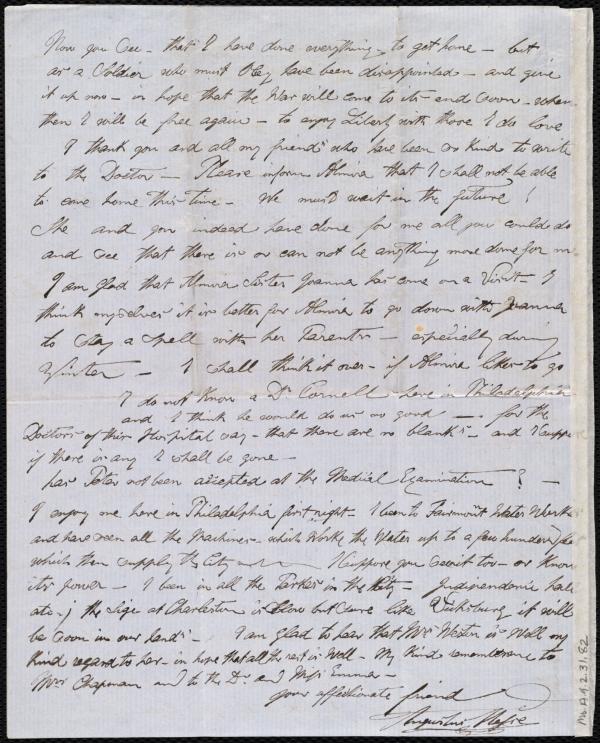 Now you See - that I have done everything - to get home - but
as a Soldier who must Obey have been disappointed - and give
it up now - in hope that the War will come to its end Soon - when
then I will be free again - to enjoy Liberty with those I do love
I thank you and all my friends who have been so kind to write
to the Doctor - Please inform Almira that I shall not be able
to come home this time - We must wait in the future!
She and you indeed have done for me all you could do
and See that there is or can not be anything more done for m
I am glad that Almira Sister Joanna has come on a Visit - I
think myselves it is better for Almira to go down with Joanna
to Stay a Spell with her Parents - especially during
Winter - I shall think it over - if Almira like to go
I do not know a Dr Cornell here in Philadelphia
and I think he would do us no good - for the
Doctors of this Hospital say - that there are no blanks - and I suppose
if there is any I shall be gone -
has Peter not been accepted at the Medical Examination? -
I enjoy me here in Philadelphia first right - I been to Fairmont Water Works
and have seen all the Machines - which Works the Water up to a few hundred feet
which then supply the City - I suppose you Saw it too - or know
its power - I been in all the Parkes in the City - Independence hall
the Sige at Charleston is Slow but Sure like Vicksburg it will
be Soon in our hands - I am glad to hear that Mrs Weston is Well my
Kind regard to her - in hope that all the rest is Well - My Kind remembrance to
Mrs Chapman and to the Dr and Miss Emma -
your affectionate friend
Augustus Hesse
Ms.A.9.2.31.82